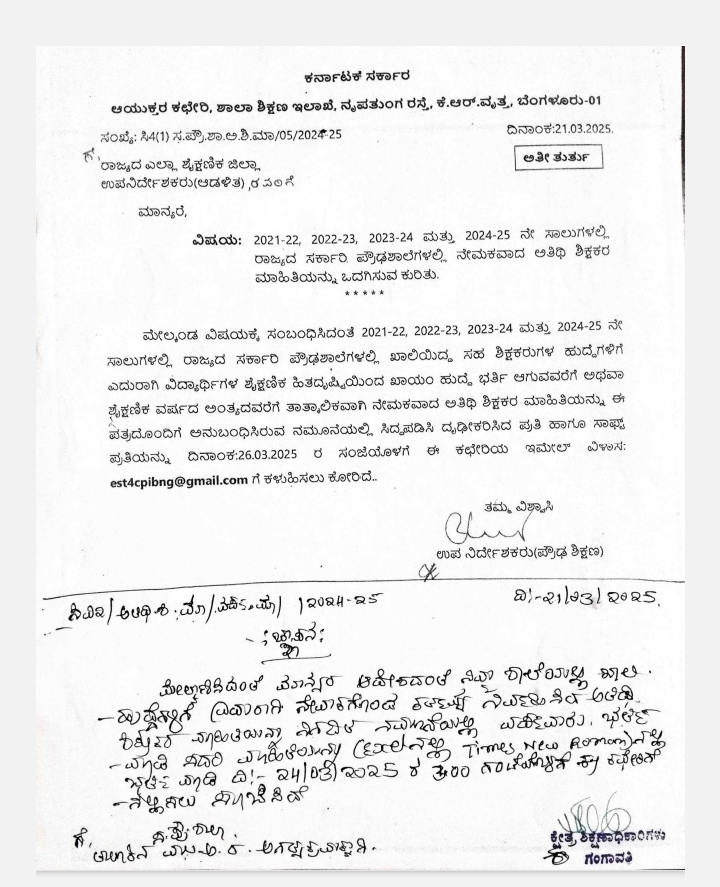 ಕರ್ನಾಟಕ ಸರ್ಕಾರ
ಆಯುಕ್ತರ ಕಛೇರಿ, ಶಾಲಾ ಶಿಕ್ಷಣ ಇಲಾಖೆ, ನೃಪತುಂಗ ರಸ್ತೆ, ಕೆ.ಆರ್.ವೃತ್ತ, ಬೆಂಗಳೂರು-01
ಸಂಖ್ಯೆ: ಸಿ4(1) ಸ.ಪ್ರೌ.ಶಾ.ಅ.ಶಿ.ಮಾ/05/2024-25 ದಿನಾಂಕ:21.03.2025.
ಗೆ, ಅತೀ ತುರ್ತು
ರಾಜ್ಯದ ಎಲ್ಲಾ ಶೈಕ್ಷಣಿಕ ಜಿಲ್ಲಾ
ಉಪನಿರ್ದೇಶಕರು(ಆಡಳಿತ)
ಮಾನ್ಯರೆ,
ವಿಷಯ: 2021-22, 2022-23, 2023-24 ಮತ್ತು 2024-25 ನೇ ಸಾಲುಗಳಲ್ಲಿ
ರಾಜ್ಯದ ಸರ್ಕಾರಿ ಪ್ರೌಢಶಾಲೆಗಳಲ್ಲಿ ನೇಮಕವಾದ ಅತಿಥಿ ಶಿಕ್ಷಕರ
ಮಾಹಿತಿಯನ್ನು ಒದಗಿಸುವ ಕುರಿತು.
*****
ಮೇಲ್ಕಂಡ ವಿಷಯಕ್ಕೆ ಸಂಬಂಧಿಸಿದಂತೆ 2021-22, 2022-23, 2023-24 ಮತ್ತು 2024-25 ನೇ
ಸಾಲುಗಳಲ್ಲಿ ರಾಜ್ಯದ ಸರ್ಕಾರಿ ಪ್ರೌಢಶಾಲೆಗಳಲ್ಲಿ ಖಾಲಿಯಿದ್ದ ಸಹ ಶಿಕ್ಷಕರುಗಳ ಹುದ್ದೆಗಳಿಗೆ
ಎದುರಾಗಿ ವಿದ್ಯಾರ್ಥಿಗಳ ಶೈಕ್ಷಣಿಕ ಹಿತದೃಷ್ಟಿಯಿಂದ ಖಾಯಂ ಹುದ್ದೆ ಭರ್ತಿ ಆಗುವವರೆಗೆ ಅಥವಾ
ಶೈಕ್ಷಣಿಕ ವರ್ಷದ ಅಂತ್ಯದವರೆಗೆ ತಾತ್ಕಾಲಿಕವಾಗಿ ನೇಮಕವಾದ ಅತಿಥಿ ಶಿಕ್ಷಕರ ಮಾಹಿತಿಯನ್ನು ಈ
ಪತ್ರದೊಂದಿಗೆ ಅನುಬಂಧಿಸಿರುವ ನಮೂನೆಯಲ್ಲಿ ಸಿದ್ಧಪಡಿಸಿ ದೃಢೀಕರಿಸಿದ ಪ್ರತಿ ಹಾಗೂ ಸಾಫ್ಟ್
ಪ್ರತಿಯನ್ನು ದಿನಾಂಕ:26.03.2025 ರ ಸಂಜೆಯೊಳಗೆ ಈ ಕಛೇರಿಯ ಇಮೇಲ್ ವಿಳಾಸ:
est4cpibng@gmail.com ಗೆ ಕಳುಹಿಸಲು ಕೋರಿದೆ..
ತಮ್ಮ ವಿಶ್ವಾಸಿ
ಉಪ ನಿರ್ದೇಶಕರು(ಪ್ರೌಢ ಶಿಕ್ಷಣ)
/2024-25 ದಿ:-21/03/2025.
-:ಜ್ಞಾಪನ:
ಮಾನ್ಯರ ಆದೇಶದಂತೆ ನಿಮ್ಮ ಶಾಲೆಯಲ್ಲಿ ಖಾಲಿ
ಅತಿಥಿ
ಶಿಕ್ಷಕರ ಮಾಹಿತಿಯನ್ನು ನಿಗದಿತ ನಮೂನೆಯಲ್ಲಿ ಭರ್ತಿ
ಮಾಡಿ ಸದರಿ ಮಾಹಿತಿಯನ್ನು Times New Roman
ಭರ್ತಿ ಮಾಡಿ ದಿ:- 24/03/2025 ರ ಈ ಕಛೇರಿಗೆ
ಸಲ್ಲಿಸಲು ಸೂಚಿಸಿದೆ
ಗೆ,
ಕ್ಷೇತ್ರ ಶಿಕ್ಷಣಾಧಿಕಾರಿಗಳು
ಗಂಗಾವತಿ